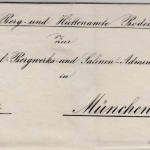 Berg- und Hüttenamte Boden
Zur
Bergwerks- und Salinen-Admin
in
München